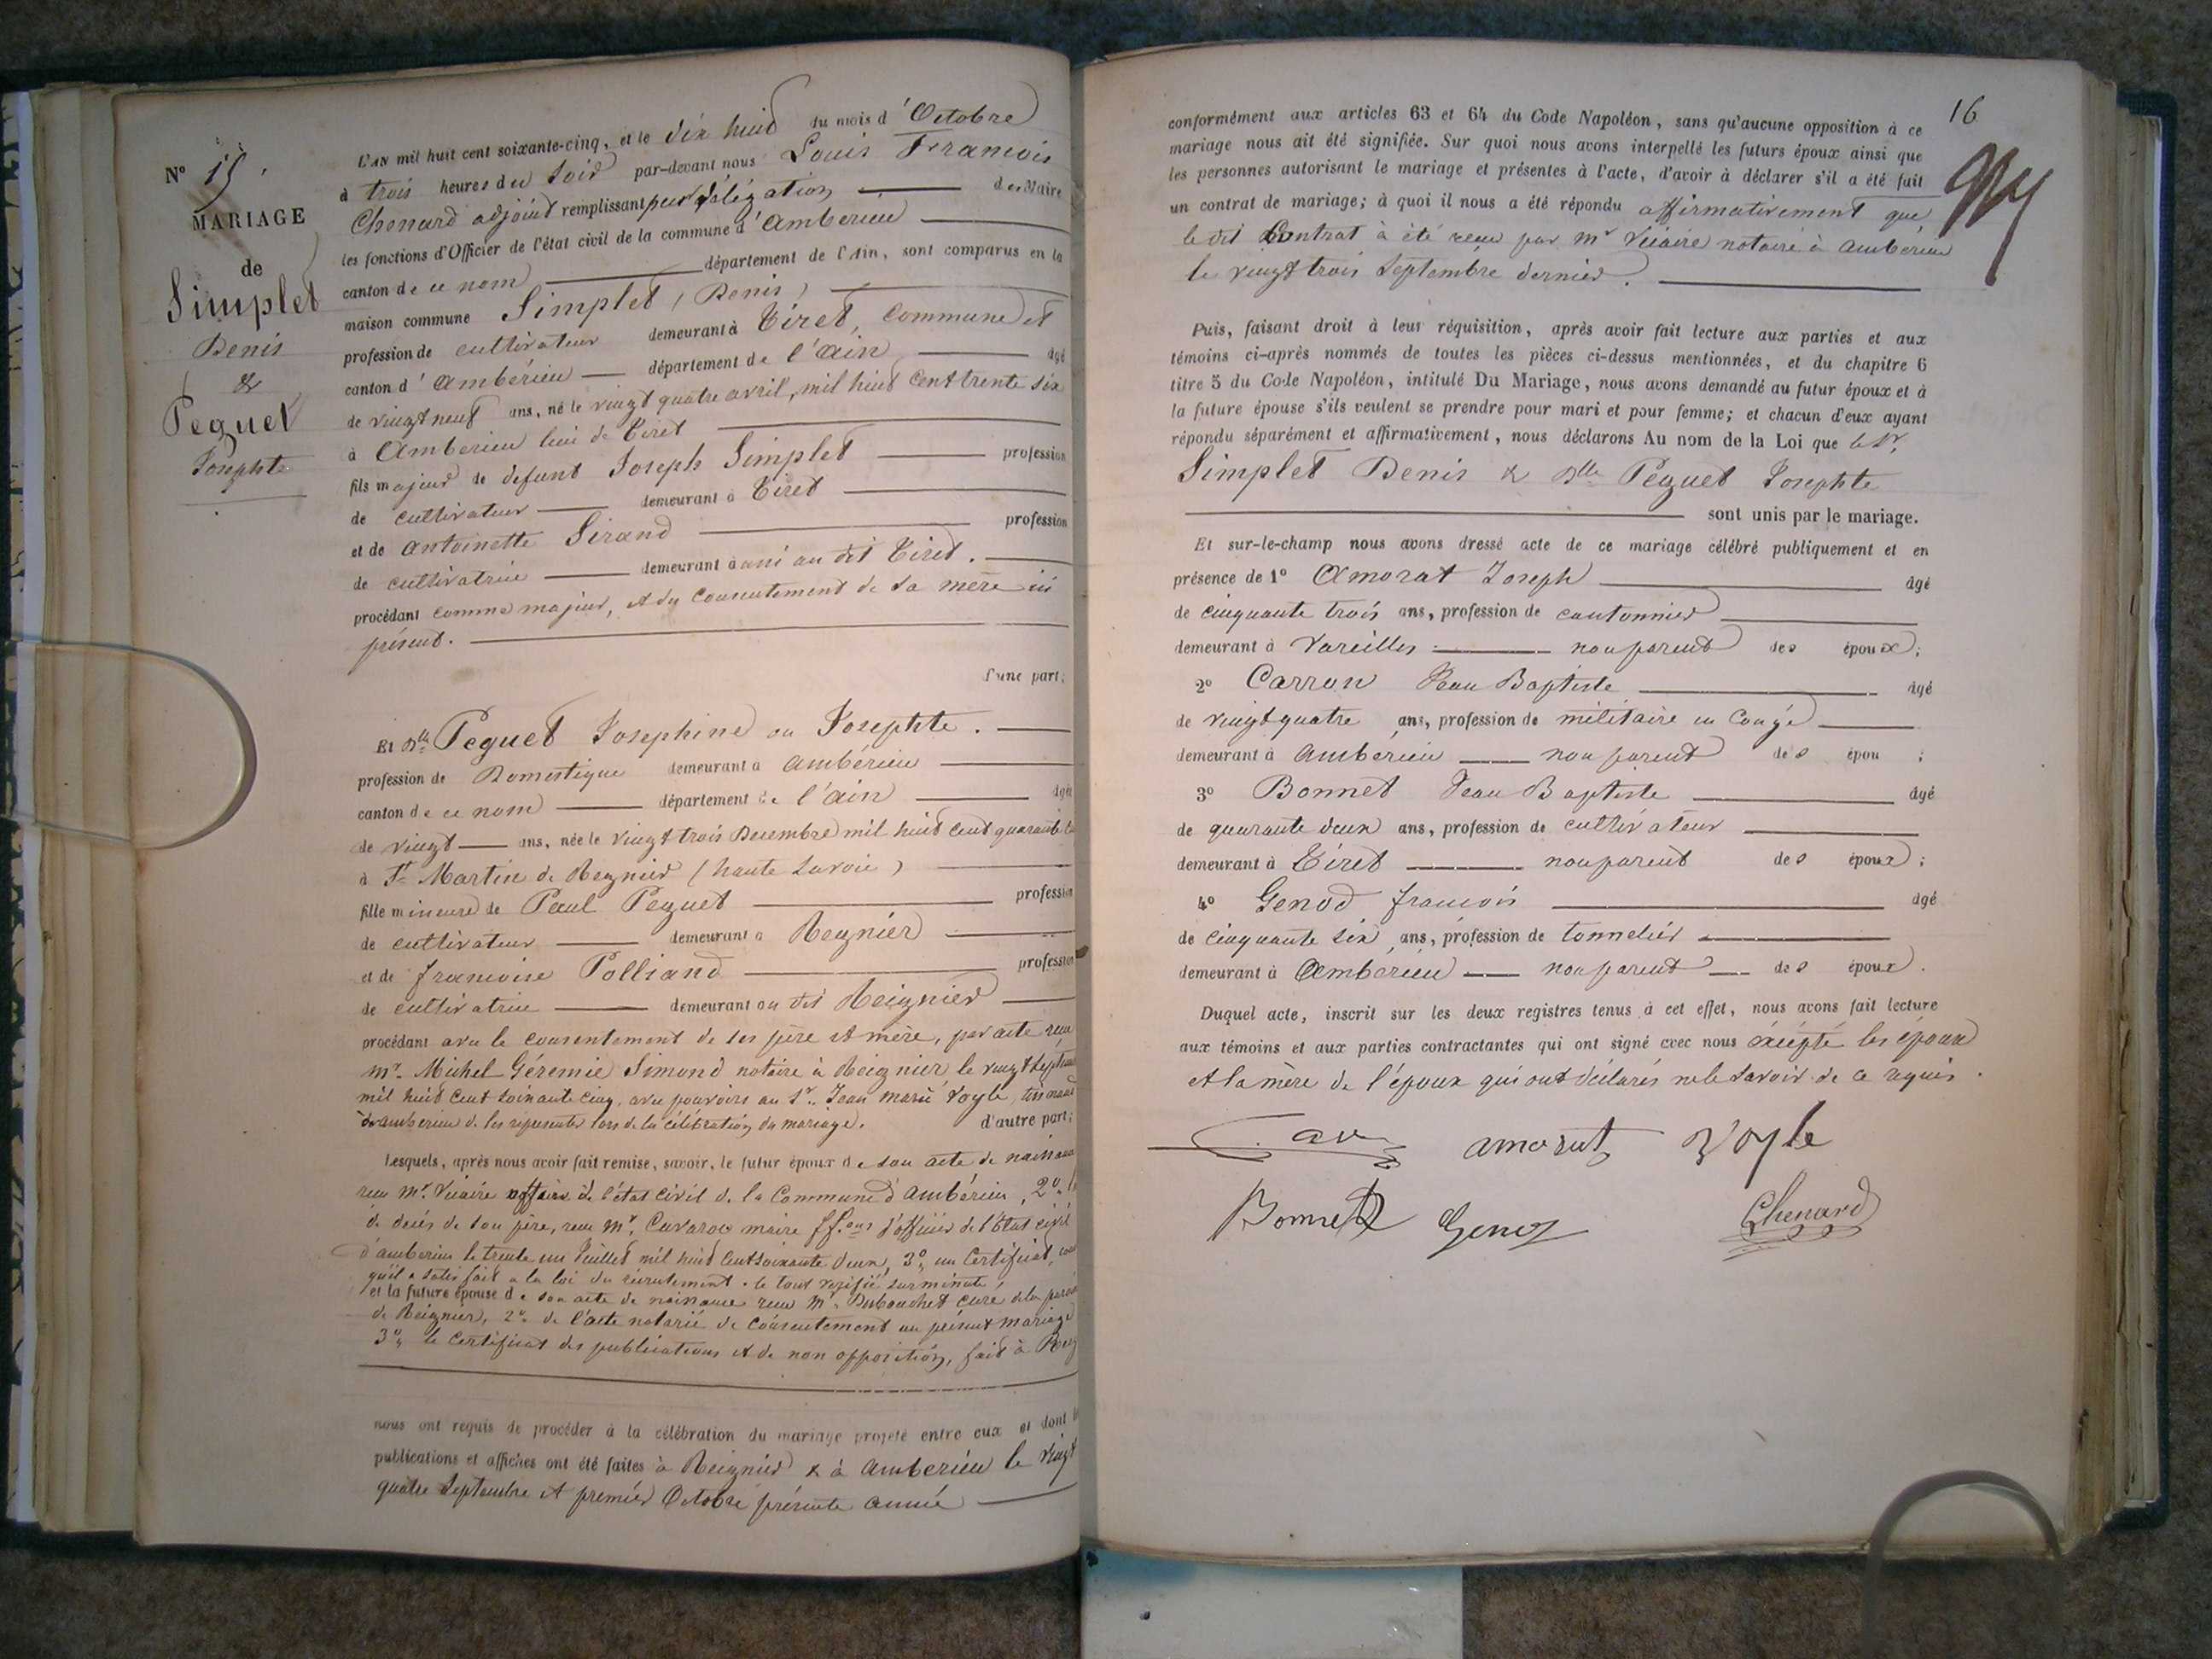 N° 15.
MARIAGE
de
Simplet
Denis
&
Peguet
Josephte
L'AN mil huit cent soixante-cinq, et le dix huit du mois d'Octobre
à trois heures du soir par-devant nous Louis François
Chenard adjoint remplissant par délégation des Maire
les fonctions d'Officier de l'état civil de la commune d'Ambérieu
canton de ce nom département de l'Ain, sont comparus en la
maison commune Simplet (Denis)
profession de cultivateur demeurant à Tiret, commune et
canton d'Ambérieu département de l'ain âgé
de vingt neuf ans, né le vingt quatre avril, mil huit cent trente six
à Ambérieu lieu de Tiret
fils majeur de défunt Joseph Simplet profession
de cultivateur demeurant à Tiret
et de antoinette Sirand profession
de cultivatrice demeurant à aussi au dit Tiret.
procédant comme majeur, et du consentement de sa mère ici
présent.
d'une part;
Et Dlle Peguet Josephine ou Josephte.
profession de Domestique demeurant à ambérieu
canton de ce nom département de l'ain âgée
de vingt ans, née le vingt trois Decembre mil huit cent quarante
à St Martin de Regnier (haute Savoie)
fille mineure de Paul Peguet profession
de cultivateur demeurant à Regnier
et de françoise Polliand profession
de cultivatrice demeurant au dit Reignier
procédant avec le consentement de ses père et mère, par acte reçu
mr. Michel Géremie Simond notaire à Reignier, le vingt septembre
mil huit cent soixante cinq, avec pouvoirs au Sr. Jean marie Voyle, tisserand
à ambérieu de les représenter lors de la célébration du mariage. d'autre part;
Lesquels, après nous avoir fait remise, savoir, le futur époux de son acte de naissance
reçu mr. Vicaire officier de l'état civil de la Commune d'Ambérieu, 2°
de décès de son père, reçu mr. Cuvaroc maire ff.ons d'officier de l'état civil
d'ambérieu le trente un Juillet mil huit cent soixante deux, 3° un Certificat,
qu'il a satisfait a la loi du recrutement. le tout vérifié sur minute
et la future épouse de son acte de naissance reçu mr. Dubouchet curé de la
de Reignier, 2° de l'acte notarié de consentement au présent mariage
3° le certificat des publications et de non opposition, fait à
nous ont requis de procéder à la célébration du mariage projeté entre eux et dont
publications et affiches ont été faites à Reignier & à ambérieu le vingt
quatre septembre et premier Octobre présente année
16
conformément aux articles 63 et 64 du Code Napoléon, sans qu'aucune opposition à ce
mariage nous ait été signifiée. Sur quoi nous avons interpellé les futurs époux ainsi que
les personnes autorisant le mariage et présentes à l'acte, d'avoir à déclarer s'il a été fait
un contrat de mariage; à quoi il nous a été répondu affirmativement que
le dit Contrat à été reçu par mr Vicaire notaire à ambérieu
le vingt trois Septembre dernier.
Puis, faisant droit à leur réquisition, après avoir fait lecture aux parties et aux
témoins ci-après nommés de toutes les pièces ci-dessus mentionnées, et du chapitre 6
titre 5 du Code Napoléon, intitulé Du Mariage, nous avons demandé au futur époux et à
la future épouse s'ils veulent se prendre pour mari et pour femme; et chacun d'eux ayant
répondu séparément et affirmativement, nous déclarons Au nom de la Loi que le Sr.
Simplet Denis & Dlle Peguet Josephte
sont unis par le mariage.
Et sur-le-champ nous avons dressé acte de ce mariage célébré publiquement et en
présence de 1° Amorat Joseph âgé
de cinquante trois ans, profession de cantonnier
demeurant à Vareilles non parent des époux;
2° Carron Jean Baptiste âgé
de vingt quatre ans, profession de militaire en Congé
demeurant à ambérieu non parent des épou ;
3° Bonnet Jean Baptiste âgé
de quarante deux ans, profession de cultivateur
demeurant à Tiret non parent des époux;
4° Genod françois âgé
de cinquante six ans, profession de tonnelier
demeurant à Ambérieu non parent des époux.
Duquel acte, inscrit sur les deux registres tenus à cet effet, nous avons fait lecture
aux témoins et aux parties contractantes qui ont signé avec nous excépté les époux
et la mère de l'époux qui ont déclarés ne le savoir de ce requis.
amorat Voyle
Bonnet Genod Chenard